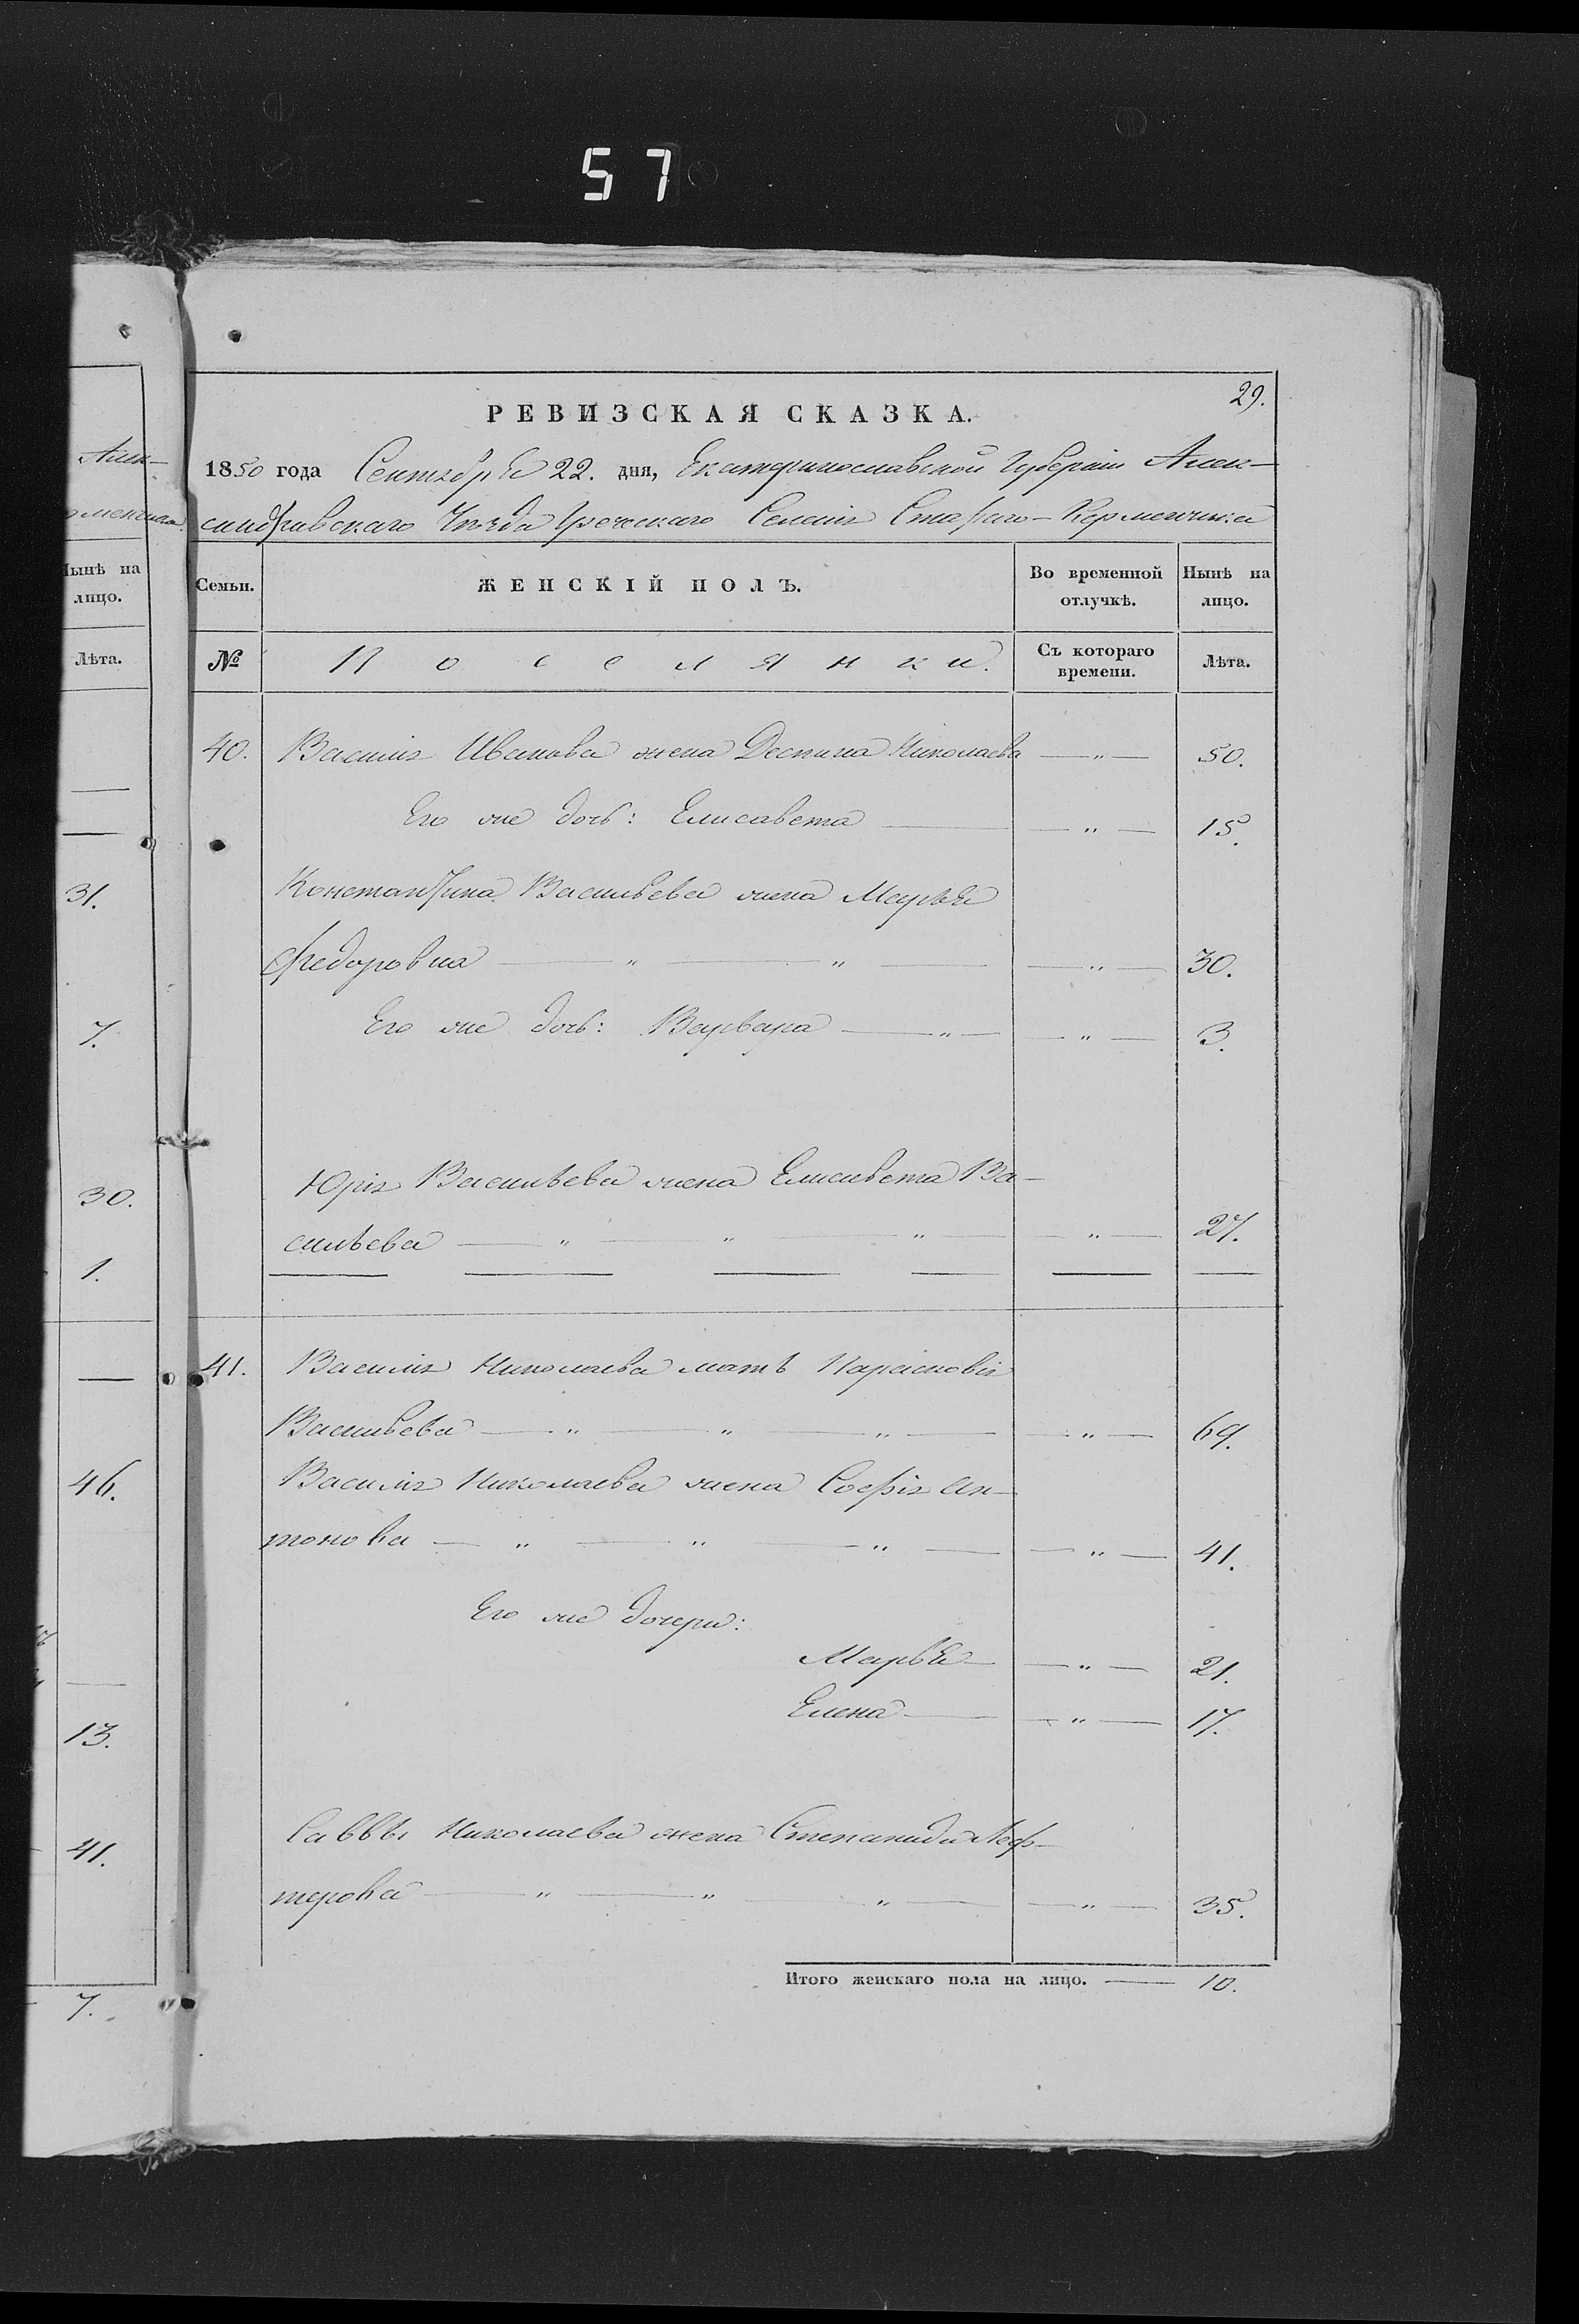 57
Алек-
Нынѣ на
лицо.
Лѣта.
31.
7.
30.
1.
46.
13.
41.
7.
29.
РЕВИЗСКАЯ СКАЗКА.
1850 года Сентября 22. дня, Екатеринославской Губерніи Алек-
сандровскаго Уѣзда Греческаго Селенія Стараго-Керменчика
Семьи. ЖЕНСКІЙ ПОЛЪ. Во временной отлучкѣ. Нынѣ на лицо.
№ Поселянки. Съ котораго времени. Лѣта.
40. Василія Иванова жена Деспина Николаева — „ — 50.
Его же дочь: Елисавета — — „ — 15.
Константина Васильева жена Марья
Федоровна — „ — „ — — „ — 30.
Его же дочь: Варвара — „ — — „ — 3.
Юрія Васильева жена Елисавета Ва-
сильева — „ — „ — „ — — „ — 27.
41. Василія Николаева мать Парасковія
Васильева — „ — „ — „ — — „ — 69.
Василія Николаева жена Софія Ан-
тонова — „ — „ — „ — — „ — 41.
Его же дочери:
Марья — — „ — 21.
Елена — — „ — 17.
Саввы Николаева жена Степанида Леф-
терова — „ — „ — „ — — „ — 35.
Итого женскаго пола на лицо. — 10.